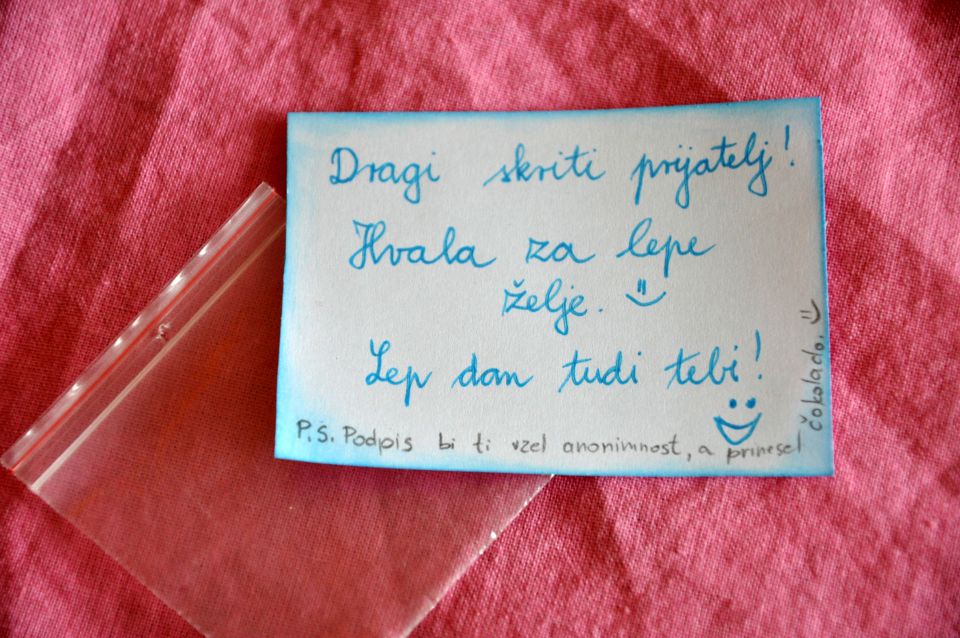 Dragi skriti prijatelj!
Hvala za lepe
želje.
Lep dan tudi tebi!
P.Š. Podpis bi ti vzel anonimnost, a prinesel
čokolado.